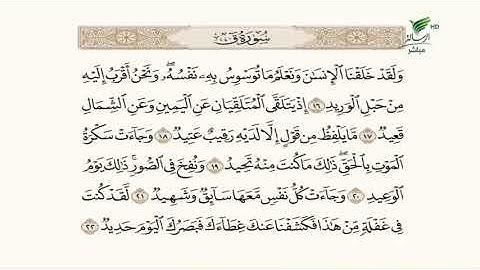 سورة ق
الرسالة
HD
مباشر
ولقد خلقنا الإنسان ونعلم ما توسوس به نفسه ونحن أقرب إليه
من حبل الوريد ١٦ إذ يتلقى المتلقيان عن اليمين وعن الشمال
قعيد ١٧ ما يلفظ من قول إلا لديه رقيب عتيد ١٨ وجاءت سكرة
الموت بالحق ذلك ما كنت منه تحيد ١٩ ونفخ في الصور ذلك يوم
الوعيد ٢٠ وجاءت كل نفس معها سائق وشهيد ٢١ لقد كنت
في غفلة من هذا فكشفنا عنك غطاءك فبصرك اليوم حديد ٢٢